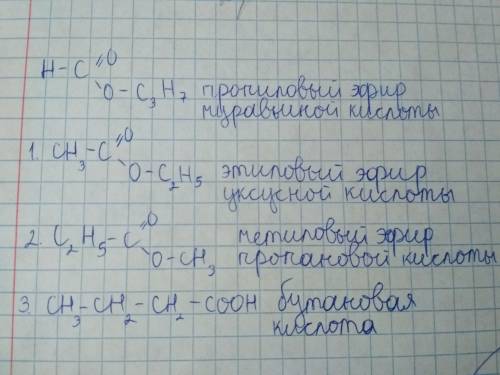 H-C=O
O-C₃H₇ пропиловый эфир
муравьиной кислоты
1. CH₃-C=O
O-C₂H₅ этиловый эфир
уксусной кислоты
2. C₂H₅-C=O метиловый эфир
O-CH₃ пропановой кислоты
3. CH₃-CH₂-CH₂-COOH бутановая
кислота